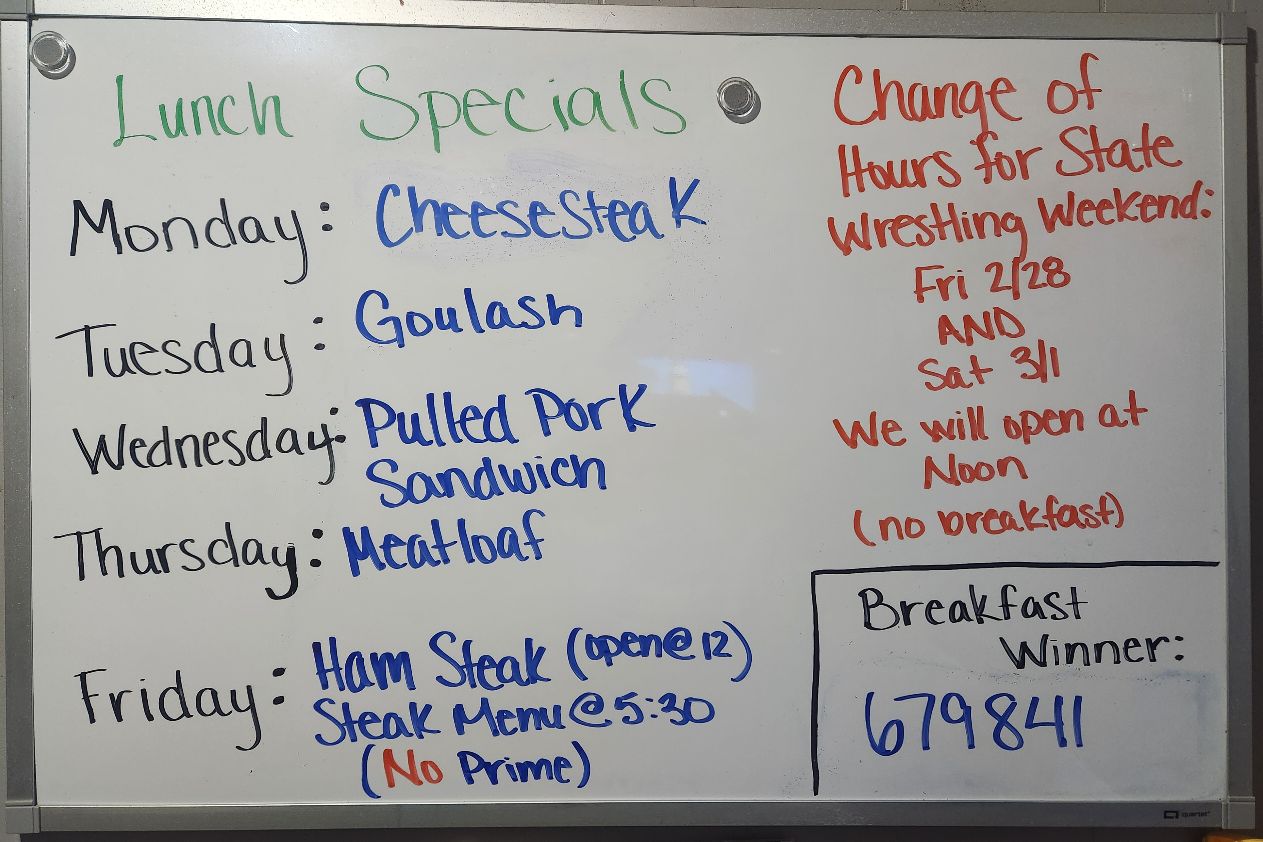 Lunch Specials
Monday: Cheesesteak
Tuesday: Goulash
Wednesday: Pulled Pork
Sandwich
Thursday: Meatloaf
Friday: Ham Steak (open@12)
Steak Menu @ 5:30
(No Prime)
Change of
Hours for State
Wrestling Weekend:
Fri 2/28
AND
Sat 3/1
We will open at
Noon
(no breakfast)
Breakfast
Winner:
679841
quartet